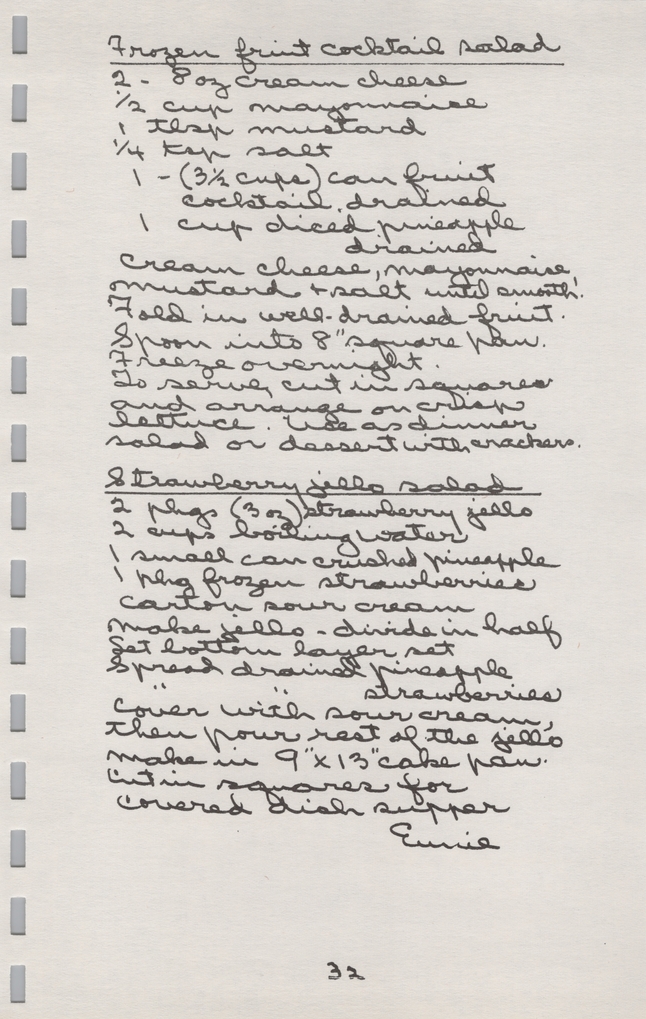 Frozen fruit cocktail salad
2 - 8 oz cream cheese
1/2 cup mayonnaise
1 tbsp mustard
1/4 tsp salt
1 - (3 1/2 cups) can fruit
cocktail, drained
1 cup diced pineapple
drained
Cream cheese, mayonnaise,
mustard + salt until smooth.
Fold in well-drained fruit.
Spoon into 8" square pan.
Freeze overnight.
To serve, cut in squares
and arrange on crisp
lettuce. Use as dinner
salad or dessert with crackers.
Strawberry jello salad
2 pkgs (3 oz) strawberry jello
2 cups boiling water
1 small can crushed pineapple
1 pkg frozen strawberries
carton sour cream
Make jello - divide in half
Let bottom layer set
Spread drained pineapple
" " strawberries
cover with sour cream,
then pour rest of the jello
make in 9" x 13" cake pan.
Cut in squares for
covered dish supper
Eunie
32